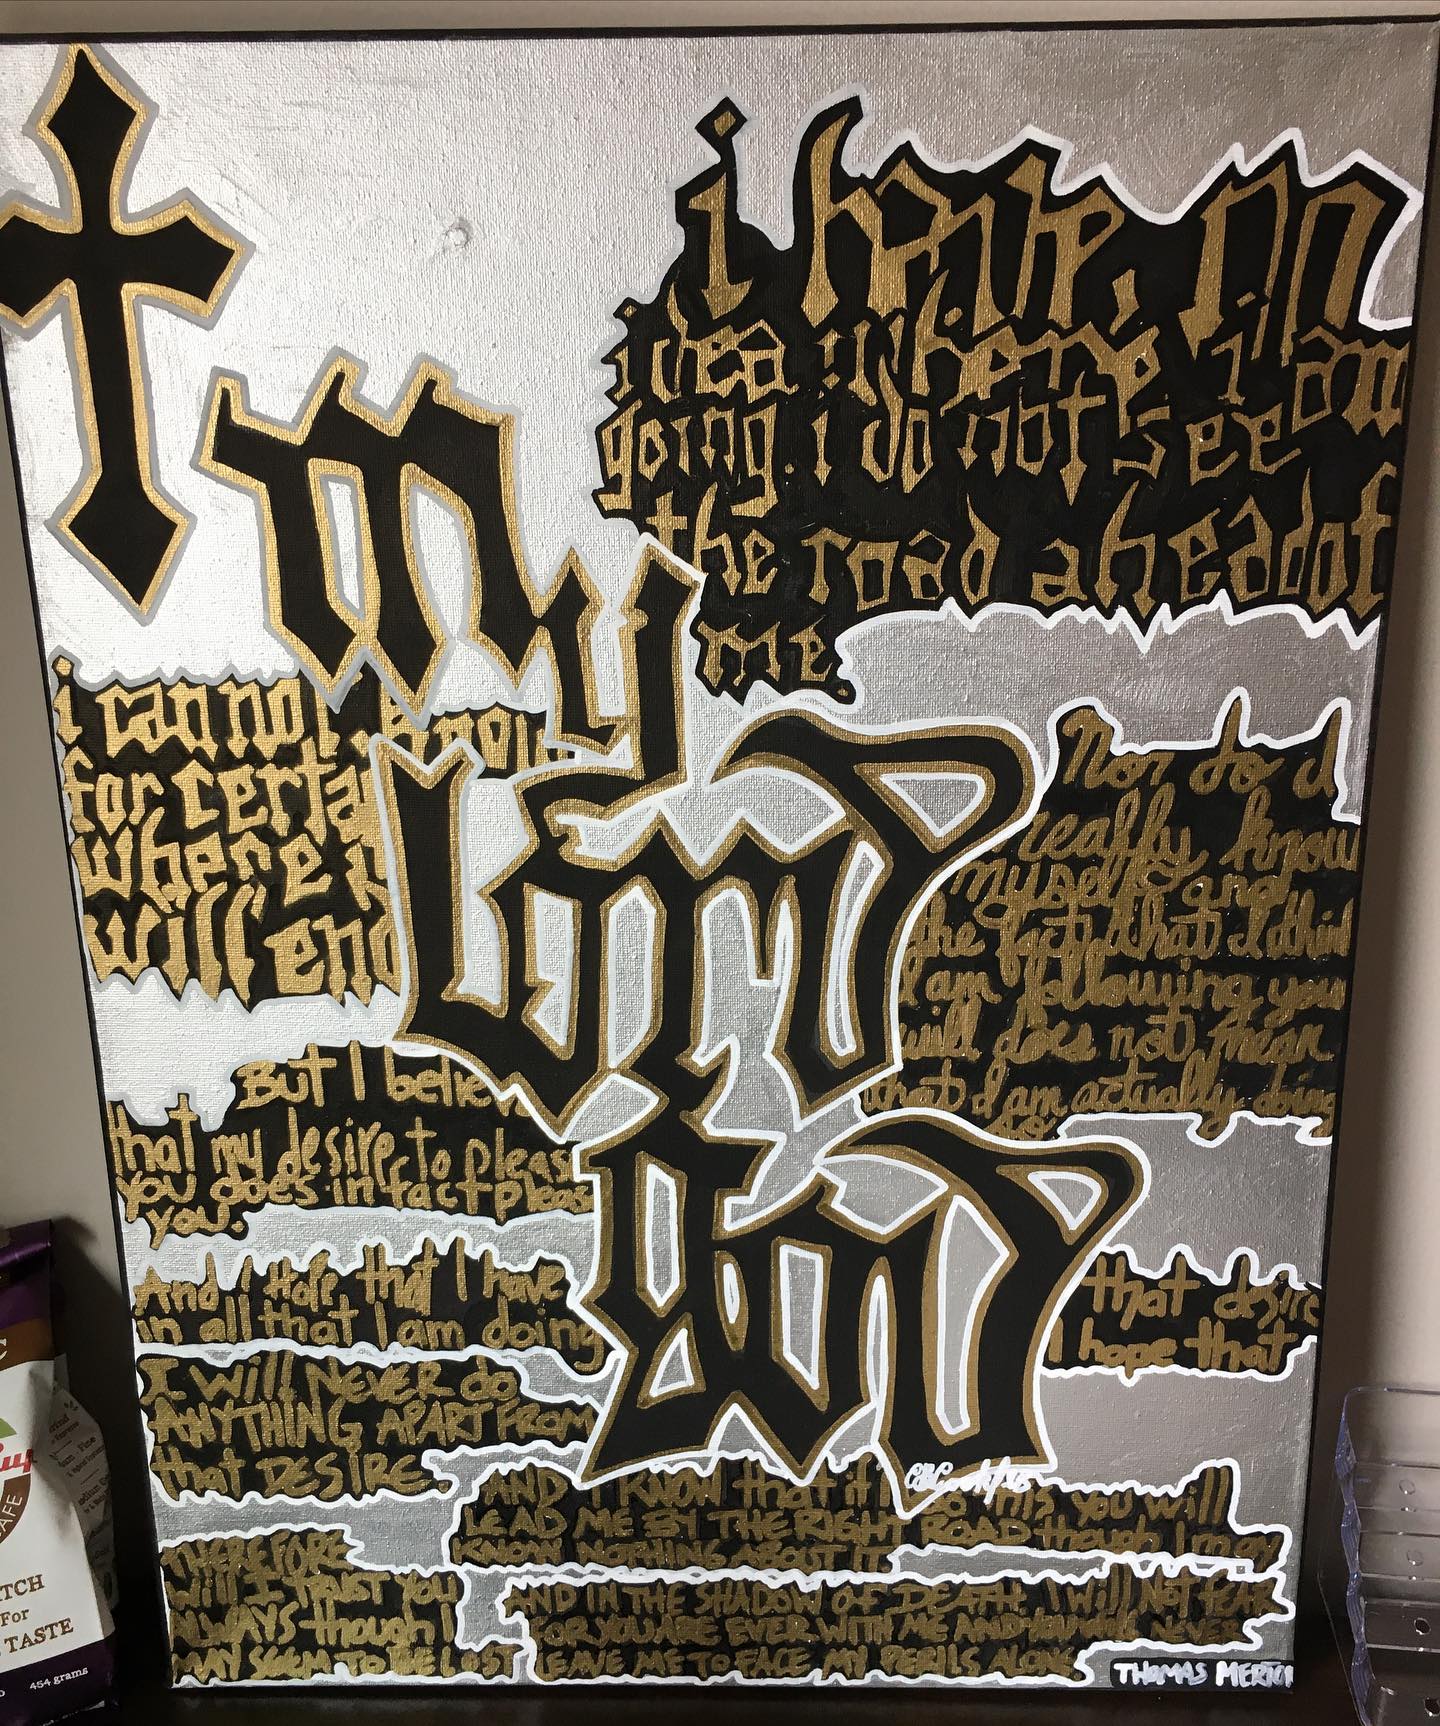 my
Lord
God
i have no
idea where i am
going. i do not see
the road ahead of
me.
i cannot know
for certain
where it
will end
Nor do I
really know
myself and
the fact that I think
I am following your
will does not mean
that I am actually doing
so
But I believe
that my desire to please
you does in fact please
you.
And I Hope that I have
that desire
in all that I am doing
I hope that
I will NEVER do
ANYTHING APART FROM
that DESIRE.
AND I KNOW that if I do this you will
LEAD ME BY THE RIGHT ROAD though I may
KNOW NOTHING ABOUT IT
THEREFORE
will I TRUST YOU
ALWAYS though I
MAY SEEM TO BE LOST
AND IN THE SHADOW OF DEATH I will NOT FEAR
FOR YOU ARE EVER WITH ME AND YOU will NEVER
LEAVE ME TO FACE MY PERILS ALONE
THOMAS MERTON
C
CAFE
For
TASTE
454 grams